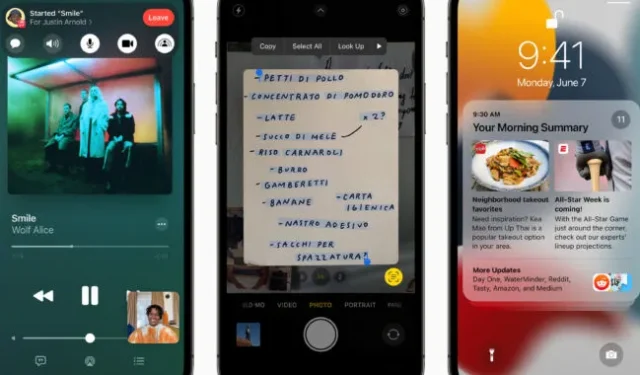 Started "Smile"
For Justin Arnold >
Leave
Smile
Wolf Alice
Copy
Select All
Look Up
- PETTI DI POLLO
- CONCENTRATO DI POMODORO
- LATTE x 2?
- SUCCO DI MELE
- RISO CARNAROLI
- BURRO
- GAMBERETTI
- BANANE
- CARTA IGIENICA
- NASTRO ADESIVO
- SACCHI PER
SPAZZATURA
VIDEO
PHOTO
PORTRAIT
9:41
Monday, June 7
9:30 AM
Your Morning Summary
11
Neighborhood takeout
favorites
Need inspiration? Kea
Mao from Up Thai is a
popular takeout option
in your area.
All-Star Week is
coming!
With the All-Star Game
just around the corner,
check out our experts'
lineup projections.
More Updates
Day One, WaterMinder, Reddit,
Tasty, Amazon, and Medium